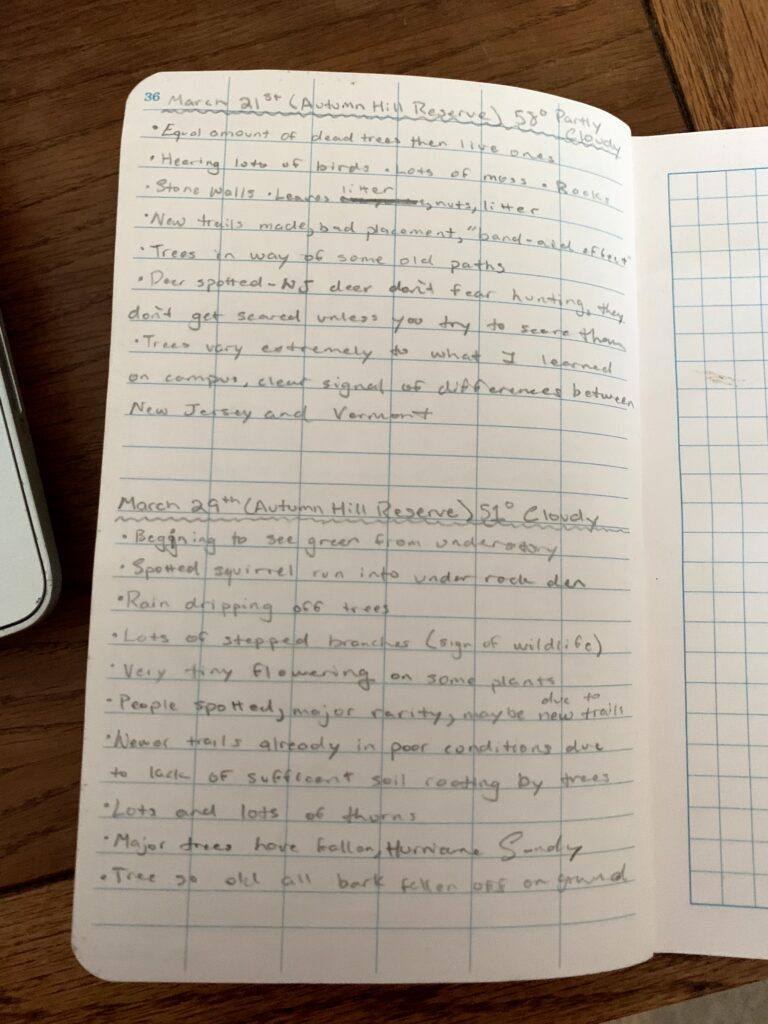 36 March 21st (Autumn Hill Reserve) 58° Partly
Cloudy
• Equal amount of dead trees then live ones
• Hearing lots of birds • Lots of moss • Rocks
• Stone walls • Leaves litter, nuts, litter
• New trails made, bad placement, "band-aid effect"
• Trees in way of some old paths
• Deer spotted - NJ deer don't fear hunting, they
don't get scared unless you try to scare them
• Trees vary extremely to what I learned
on campus, clear signal of differences between
New Jersey and Vermont
March 29th (Autumn Hill Reserve) 51° Cloudy
• Beggning to see green from understory
• Spotted squirrel run into under rock den
• Rain dripping off trees
• Lots of stepped branches (sign of wildlife)
• Very tiny flowering on some plants
• People spotted, major rarity, maybe due to new trails
• Newer trails already in poor conditions due
to lack of sufficent soil rooting by trees
• Lots and lots of thorns
• Major trees have fallen, Hurricane Sandy
• Tree so old all bark fallen off on ground